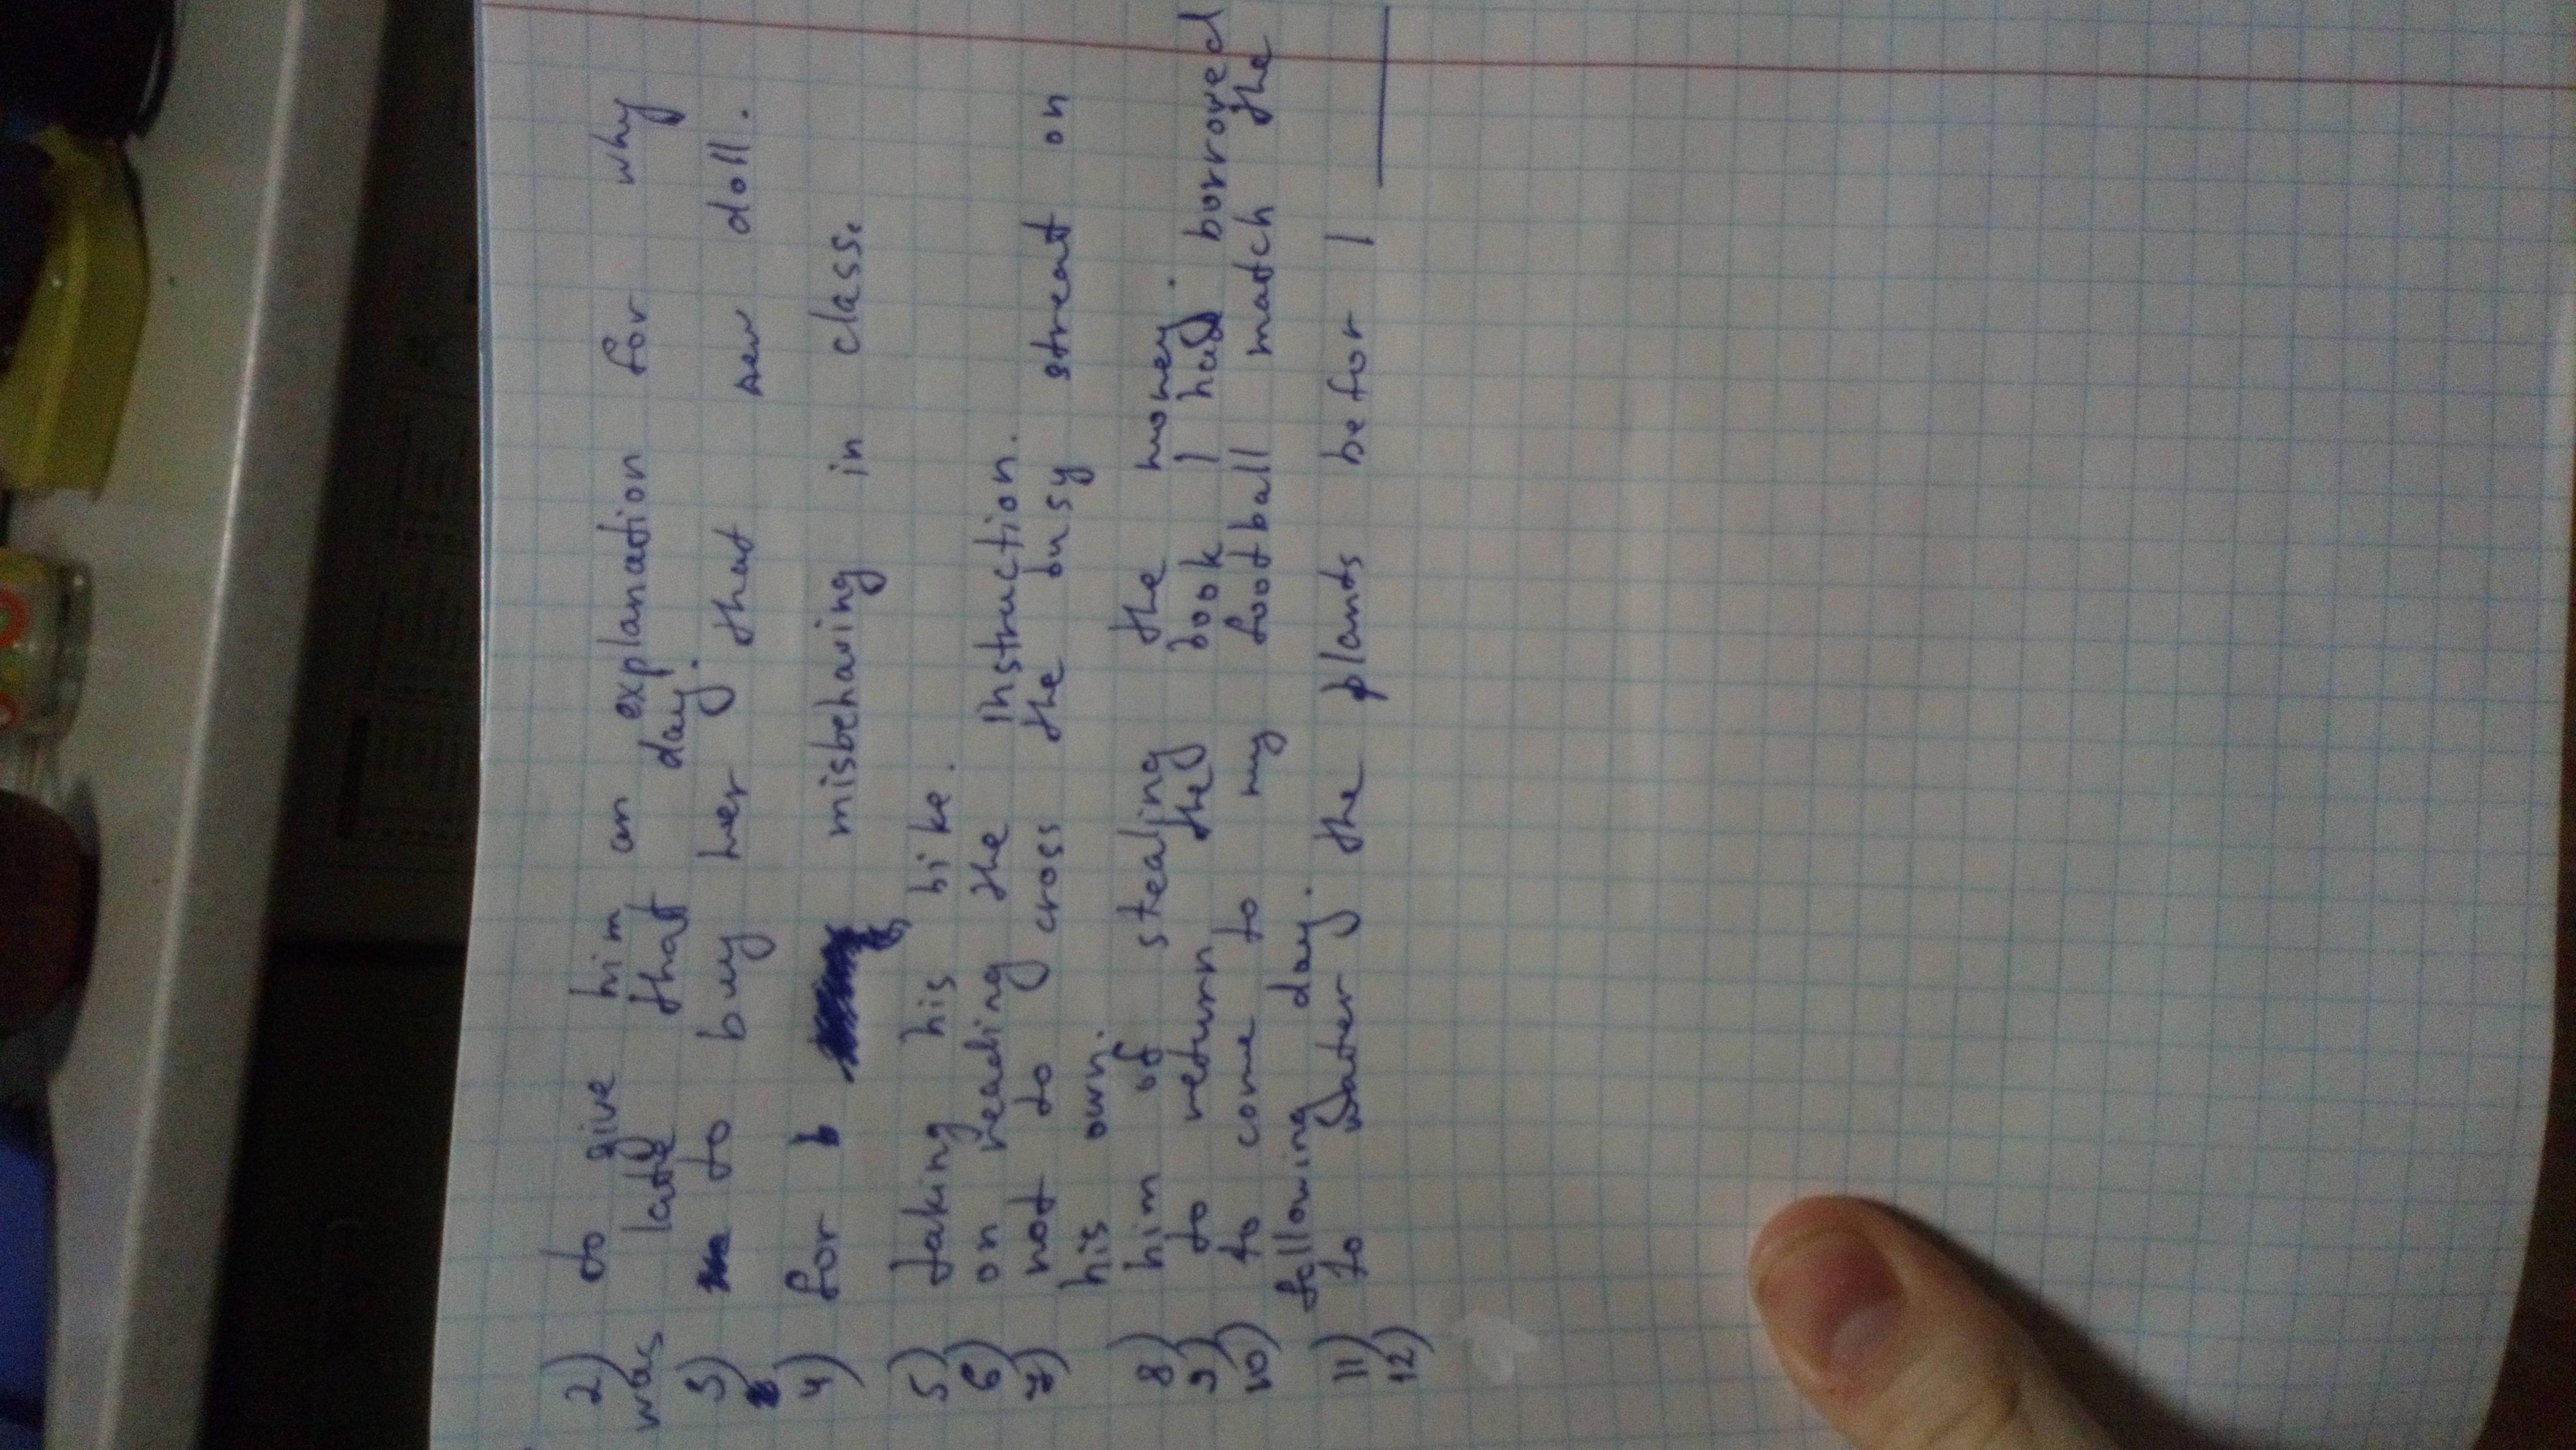 2) to give him an explanation for why
was late that day.
3) to buy her that new doll.
4) for misbehaving in class.
5) taking his bike.
6) on reading the instruction.
7) not to cross the busy streat on
his own.
8) him of stealing the money.
9) to return the book I had borrowed
10) to come to my football match the
following day.
11) to water the plants befor I
12)